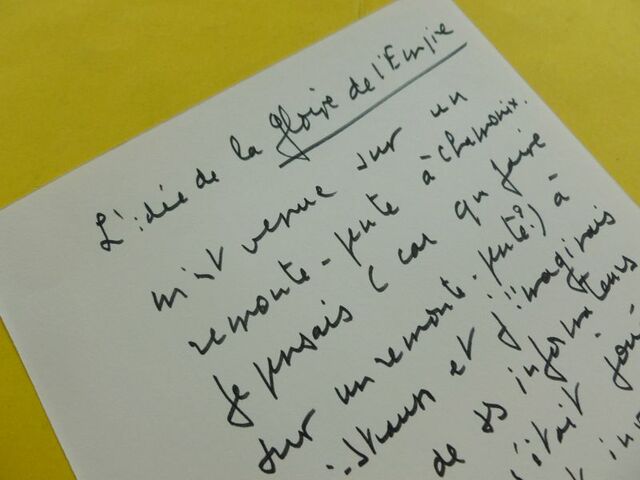 L'idée de la gloire de l'Empire
m'est venue sur un
remonte-pente à Chamonix.
Je pensais (car que faire
sur un remonte-pente?) à
et j'imaginais
de ses informateurs
s'était